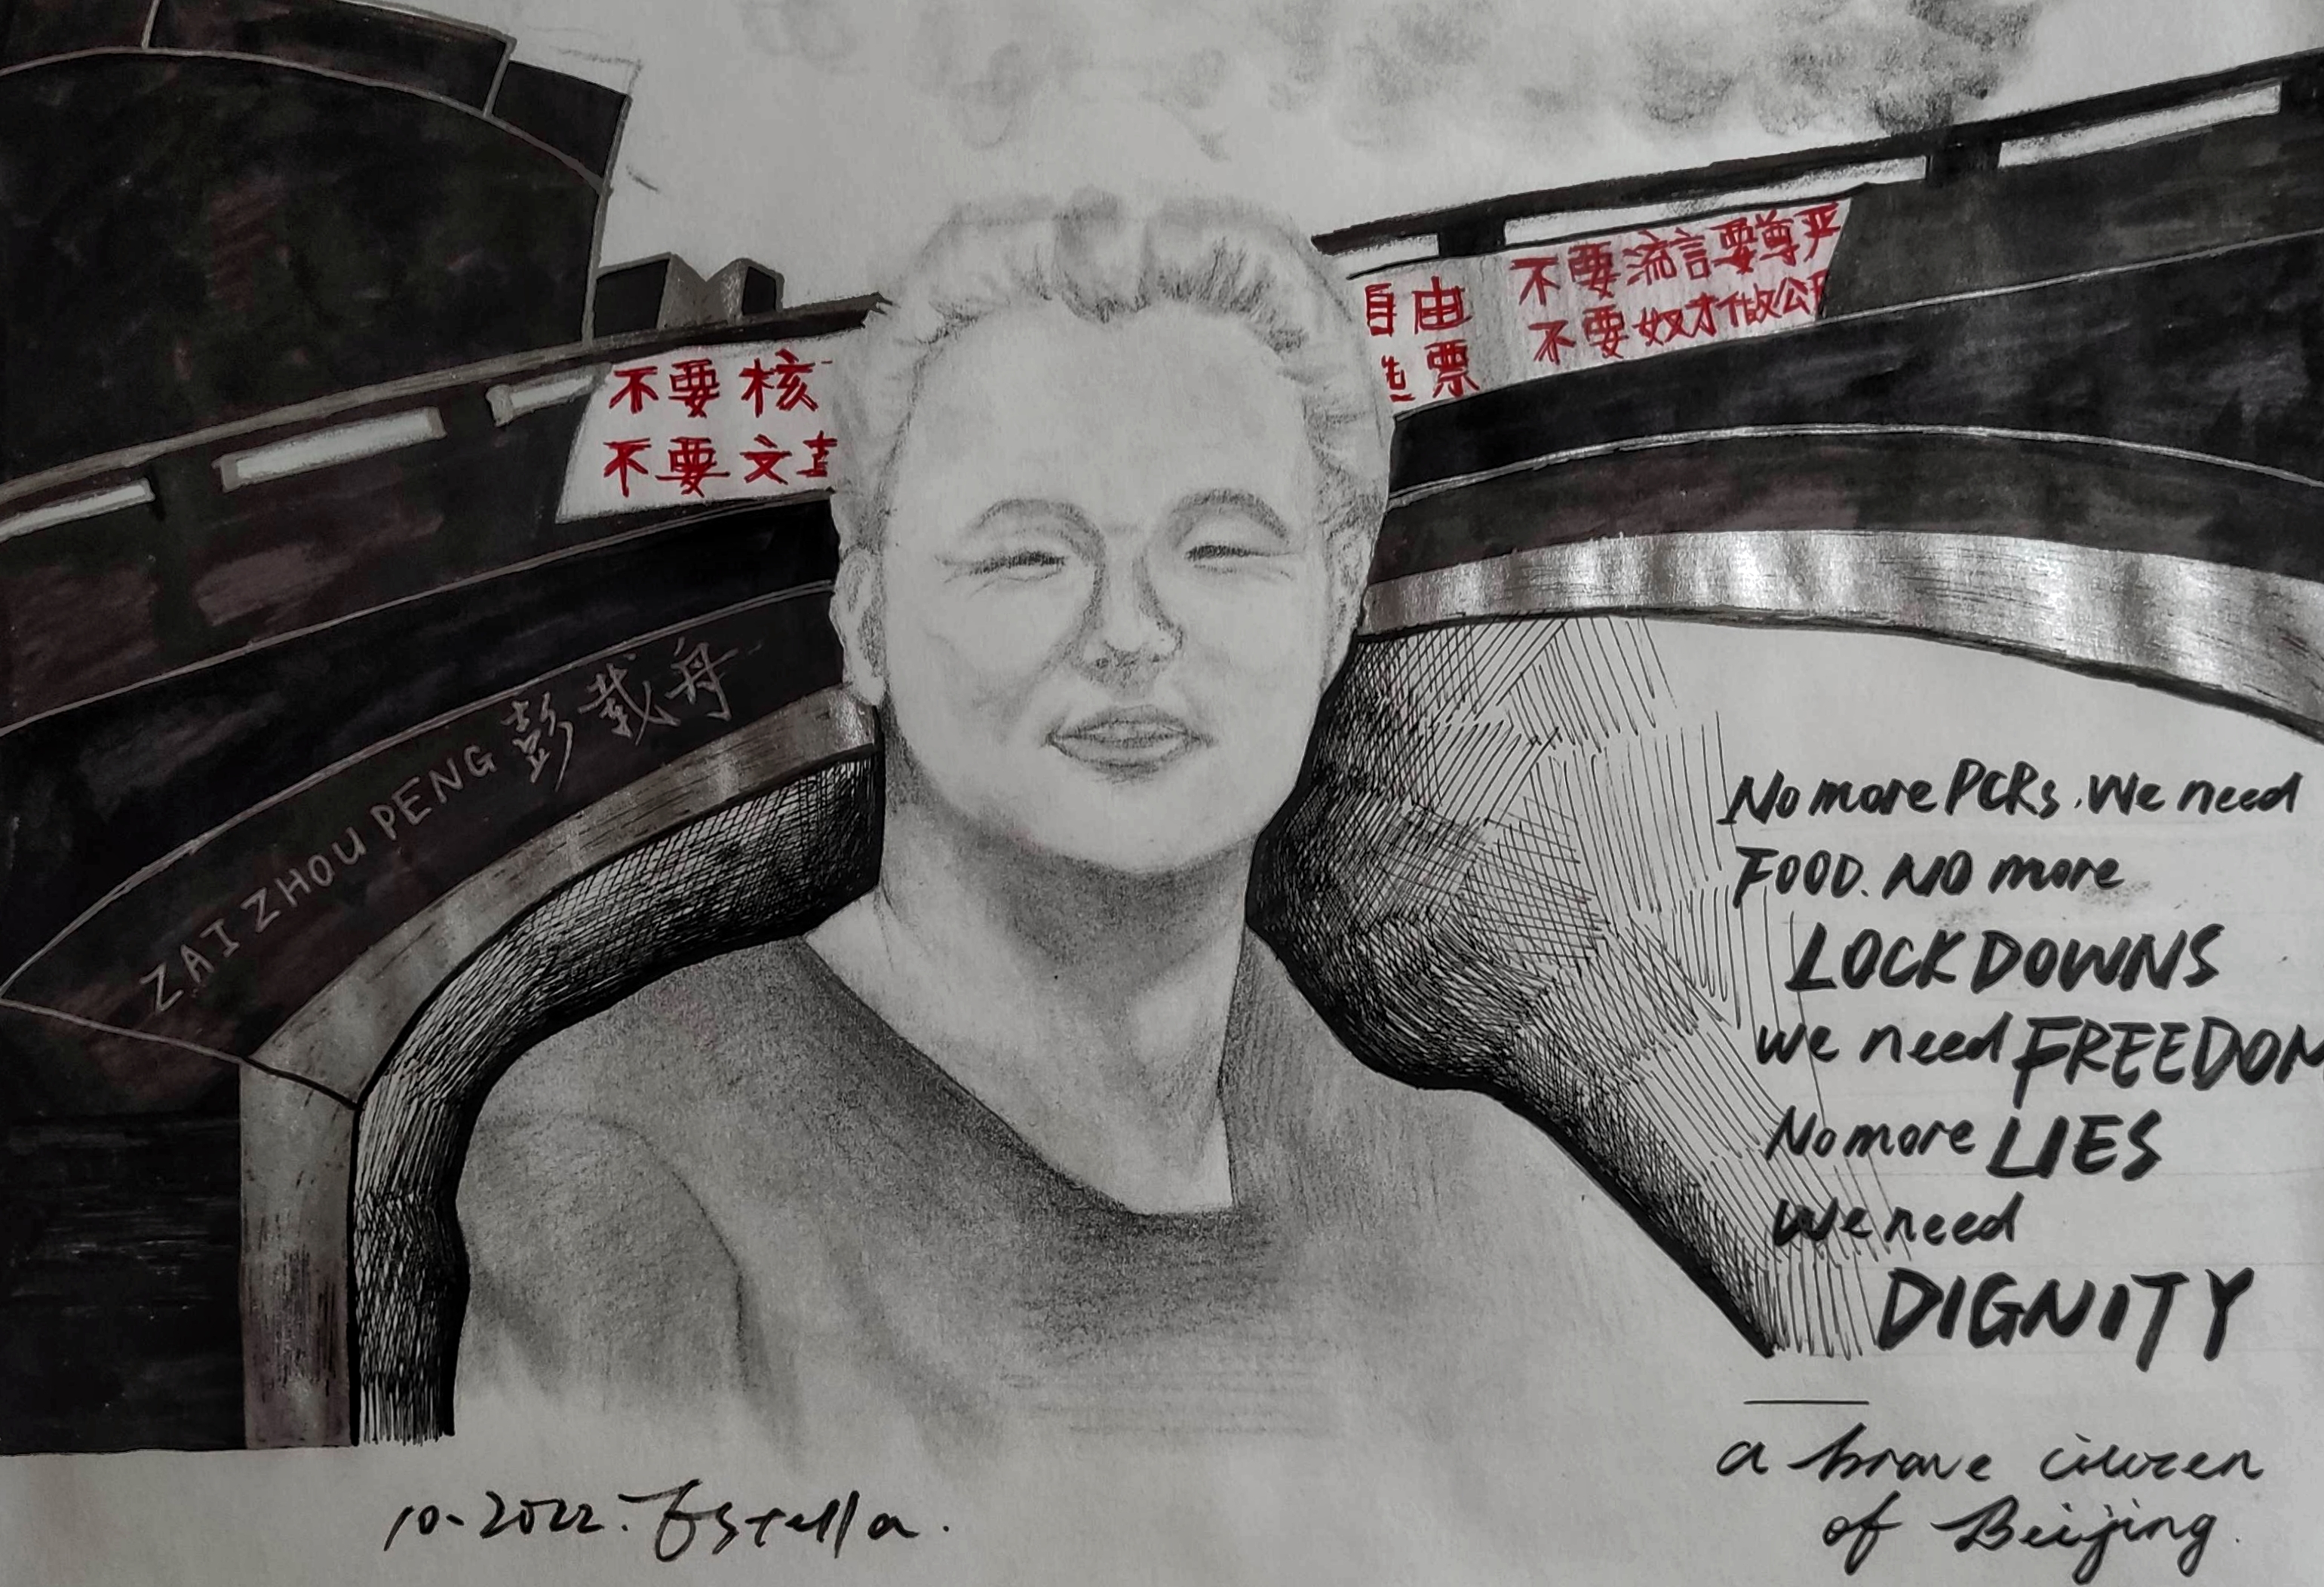 不要核
不要文
自由
票
不要流言要尊严
不要奴才做公
ZAIZHOU PENG 彭载舟
No more PCRs. We need
FOOD. NO more
LOCKDOWNS
we need FREEDOM
No more LIES
we need
DIGNITY
a brave citizen
of Beijing.
10-2022. Estella.